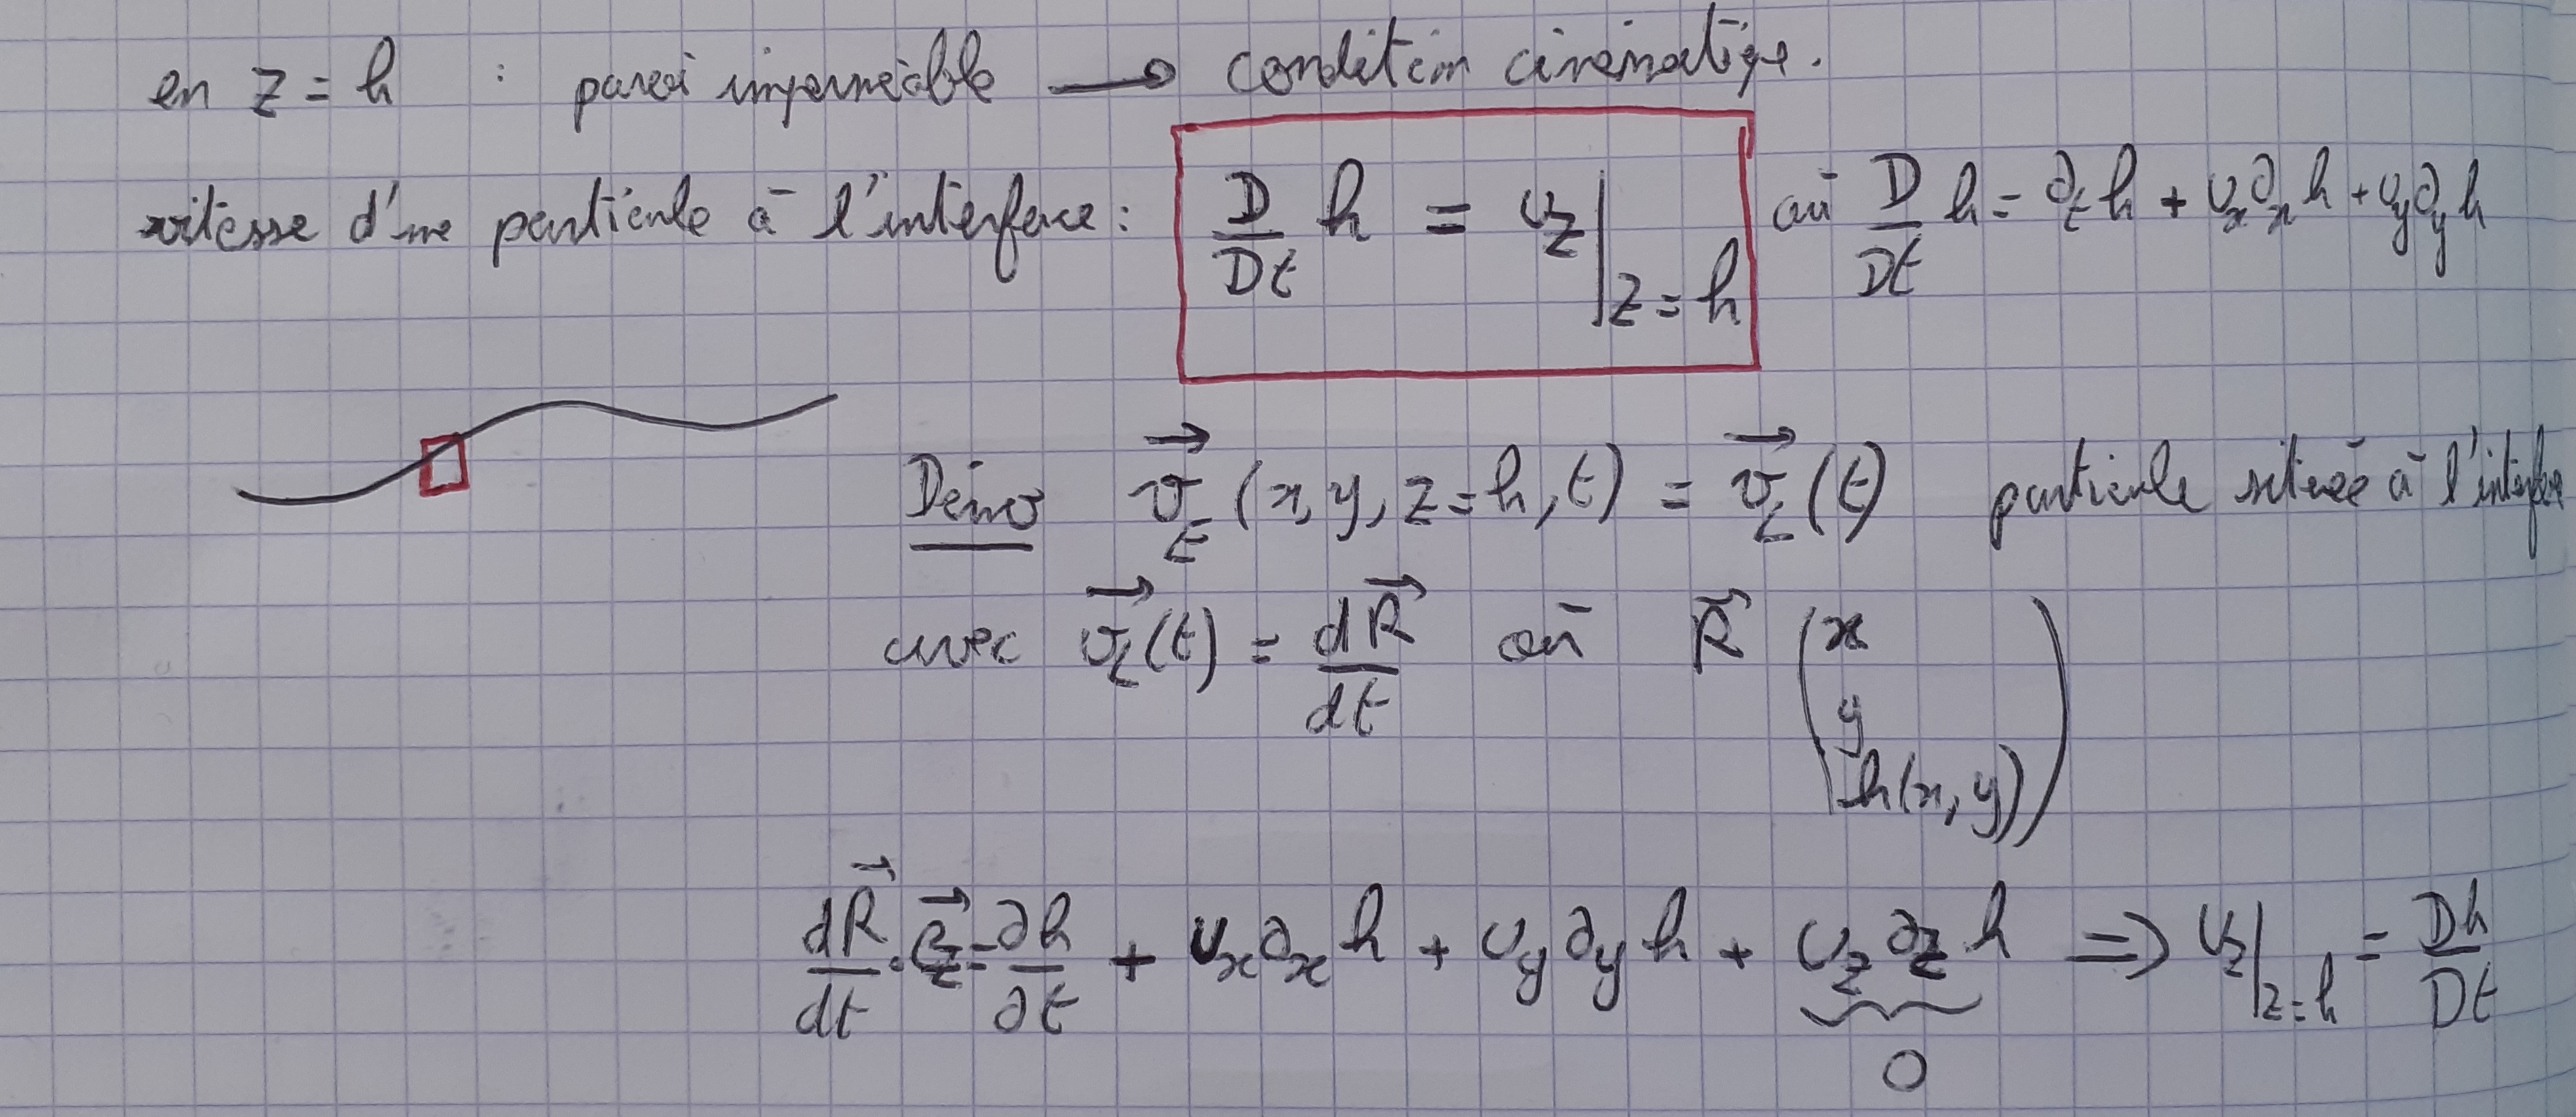 en z = h : paroi imperméable → condition cinématique.
vitesse d'une particule à l'interface : D/Dt h = v_z|_{z=h} où D/Dt h = ∂_t h + v_x ∂_x h + v_y ∂_y h
Démo \vec{v}_E (x, y, z=h, t) = \vec{v}_L (t) particule située à l'interface
avec \vec{v}_L (t) = d\vec{R}/dt où \vec{R} (x
y
h(x, y))
d\vec{R}/dt . \vec{e}_z = ∂h/∂t + v_x ∂_x h + v_y ∂_y h + v_z ∂_z h ⇒ v_z|_{z=h} = Dh/Dt
0